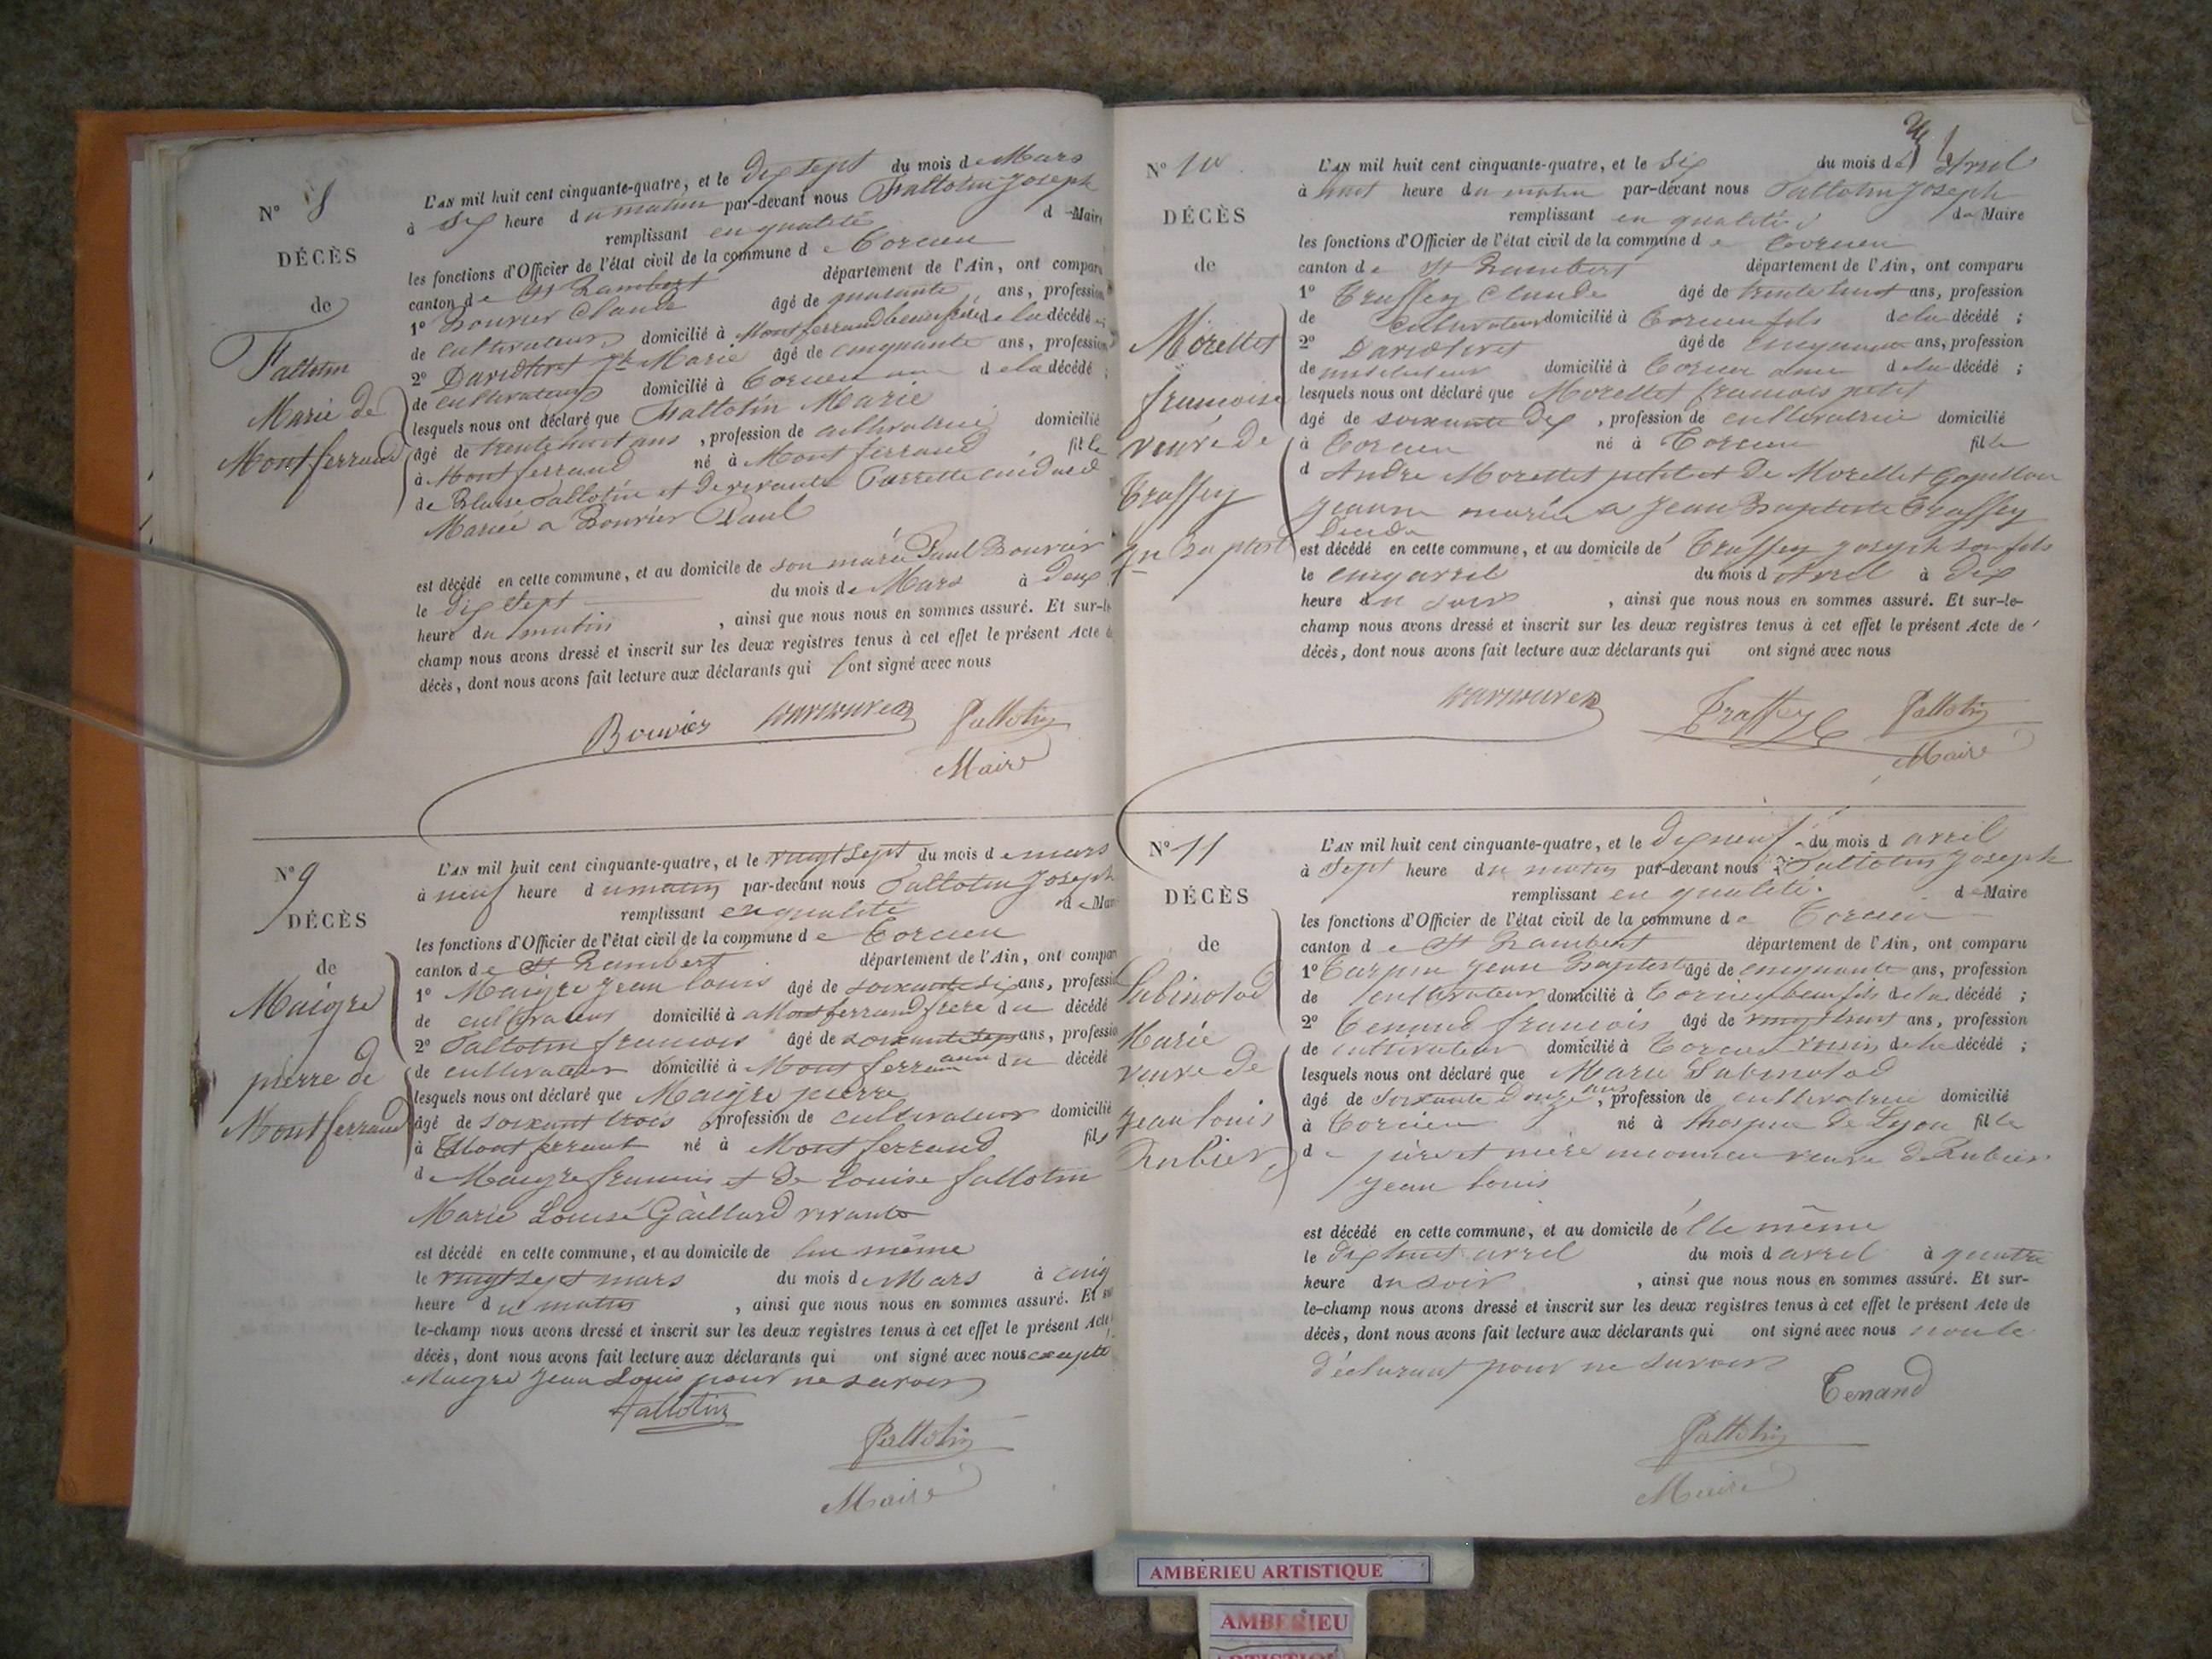 N° 8
DÉCÈS
de
Fallotin
Marie de
Montferrand
L'AN mil huit cent cinquante-quatre, et le dix sept du mois de Mars
à six heure du matin par-devant nous Fallotin Joseph
remplissant en qualité de Maire
les fonctions d'Officier de l'état civil de la commune de Torcieu
canton de St Rambert département de l'Ain, ont comparu
1° Bouvier Claude âgé de quarante ans, profession
de cultivateur domicilié à Montferrand beaufrère de la décédée
2° Davidtivet Marie âgé de cinquante ans, profession
de cultivateur domicilié à Torcieu ami de la décédé ;
lesquels nous ont déclaré que Fallotin Marie
âgé de trente huit ans, profession de cultivatrice domicilié
à Montferrand né à Montferrand fille
de Blaise Fallotin et de vivante
Mariée a Bouvier Paul
est décédé en cette commune, et au domicile de son marie Paul Bouvier
le dix sept du mois de Mars à deux
heure du matin, ainsi que nous nous en sommes assuré. Et sur-le-
champ nous avons dressé et inscrit sur les deux registres tenus à cet effet le présent Acte de
décès, dont nous avons fait lecture aux déclarants qui ont signé avec nous
Bouvier Fallotin
Maire
N° 9
DÉCÈS
de
Maigre
pierre de
Montferrand
L'AN mil huit cent cinquante-quatre, et le vingt sept du mois de mars
à neuf heure du matin par-devant nous Fallotin Joseph
remplissant en qualité de Maire
les fonctions d'Officier de l'état civil de la commune de Torcieu
canton de St Rambert département de l'Ain, ont comparu
1° Maigre Jean Louis âgé de soixante six ans, profession
de cultivateur domicilié à Montferrand frere du décédé
2° Fallotin francois âgé de soixante sept ans, profession
de cultivateur domicilié à Montferrand ami du décédé
lesquels nous ont déclaré que Maigre pierre
âgé de soixant trois, profession de cultivateur domicilié
à Montferrant né à Montferrand fils
de Maigre francois et de Louise fallotin
Marie Louise Gaillard vivante
est décédé en cette commune, et au domicile de lui même
le vingt sept mars du mois de Mars à cinq
heure du matin, ainsi que nous nous en sommes assuré. Et sur
le-champ nous avons dressé et inscrit sur les deux registres tenus à cet effet le présent Acte
décès, dont nous avons fait lecture aux déclarants qui ont signé avec nous exepté
Maigre Jean Louis pour ne savoir
fallotin
Fallotin
Maire
N° 10
DÉCÈS
de
Morellet
francoise
veuve de
Traffey
Jn Baptist
L'AN mil huit cent cinquante-quatre, et le six du mois d'Avril
à huit heure du matin par-devant nous Fallotin Joseph
remplissant en qualité de Maire
les fonctions d'Officier de l'état civil de la commune de Torcieu
canton de St Rambert département de l'Ain, ont comparu
1° Traffey Claude âgé de trente huit ans, profession
de cultivateur domicilié à Torcieu fils de la décédé ;
2° Davidtivet âgé de cinquante ans, profession
de instituteur domicilié à Torcieu ami de la décédé ;
lesquels nous ont déclaré que Morellet francois petit
âgé de soixante dix, profession de cultivatrice domicilié
à Torcieu né à Torcieu fille
d André Morellet petit et de Morellet Capillon
Jeanne mariée a Jean Baptiste Traffey
est décédé en cette commune, et au domicile de Traffey Joseph son fils
le cinq avril du mois d'Avril à dix
heure du soir, ainsi que nous nous en sommes assuré. Et sur-le-
champ nous avons dressé et inscrit sur les deux registres tenus à cet effet le présent Acte de
décès, dont nous avons fait lecture aux déclarants qui ont signé avec nous
Traffey Fallotin
Maire
N° 11
DÉCÈS
de
Sabinolod
Marie
veuve de
Jean Louis
Rubier
L'AN mil huit cent cinquante-quatre, et le dix neuf du mois d avril
à sept heure du matin par-devant nous Fallotin Joseph
remplissant en qualité de Maire
les fonctions d'Officier de l'état civil de la commune de Torcieu
canton de St Rambert département de l'Ain, ont comparu
1° Jean Baptiste âgé de cinquante ans, profession
de cultivateur domicilié à Torcieu beau fils de la décédé ;
2° Tenand francois âgé de vingt huit ans, profession
de cultivateur domicilié à Torcieu voisin de la décédé ;
lesquels nous ont déclaré que Marie Sabinolod
âgé de soixante douze ans, profession de cultivatrice domicilié
à Torcieu né à hospice de Lyon fille
de père et mère inconnu veuve de Rubier
Jean Louis
est décédé en cette commune, et au domicile de elle même
le dix huit avril du mois d avril à quatre
heure du soir, ainsi que nous nous en sommes assuré. Et sur-
le-champ nous avons dressé et inscrit sur les deux registres tenus à cet effet le présent Acte de
décès, dont nous avons fait lecture aux déclarants qui ont signé avec nous
déclarant pour ne savoir
Tenand
Fallotin
Maire
AMBERIEU ARTISTIQUE
AMBERIEU
ARTISTIQUE